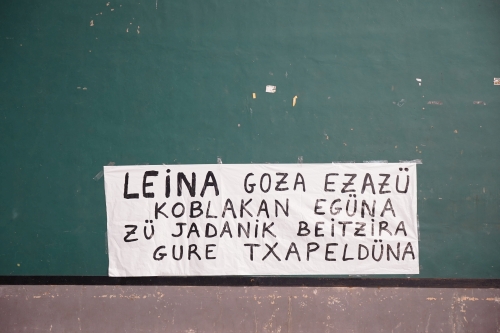 LEINA GOZA EZAZÜ
KOBLAKAN EGÜNA
ZÜ JADANIK BEITZIRA
GURE TXAPELDÜNA